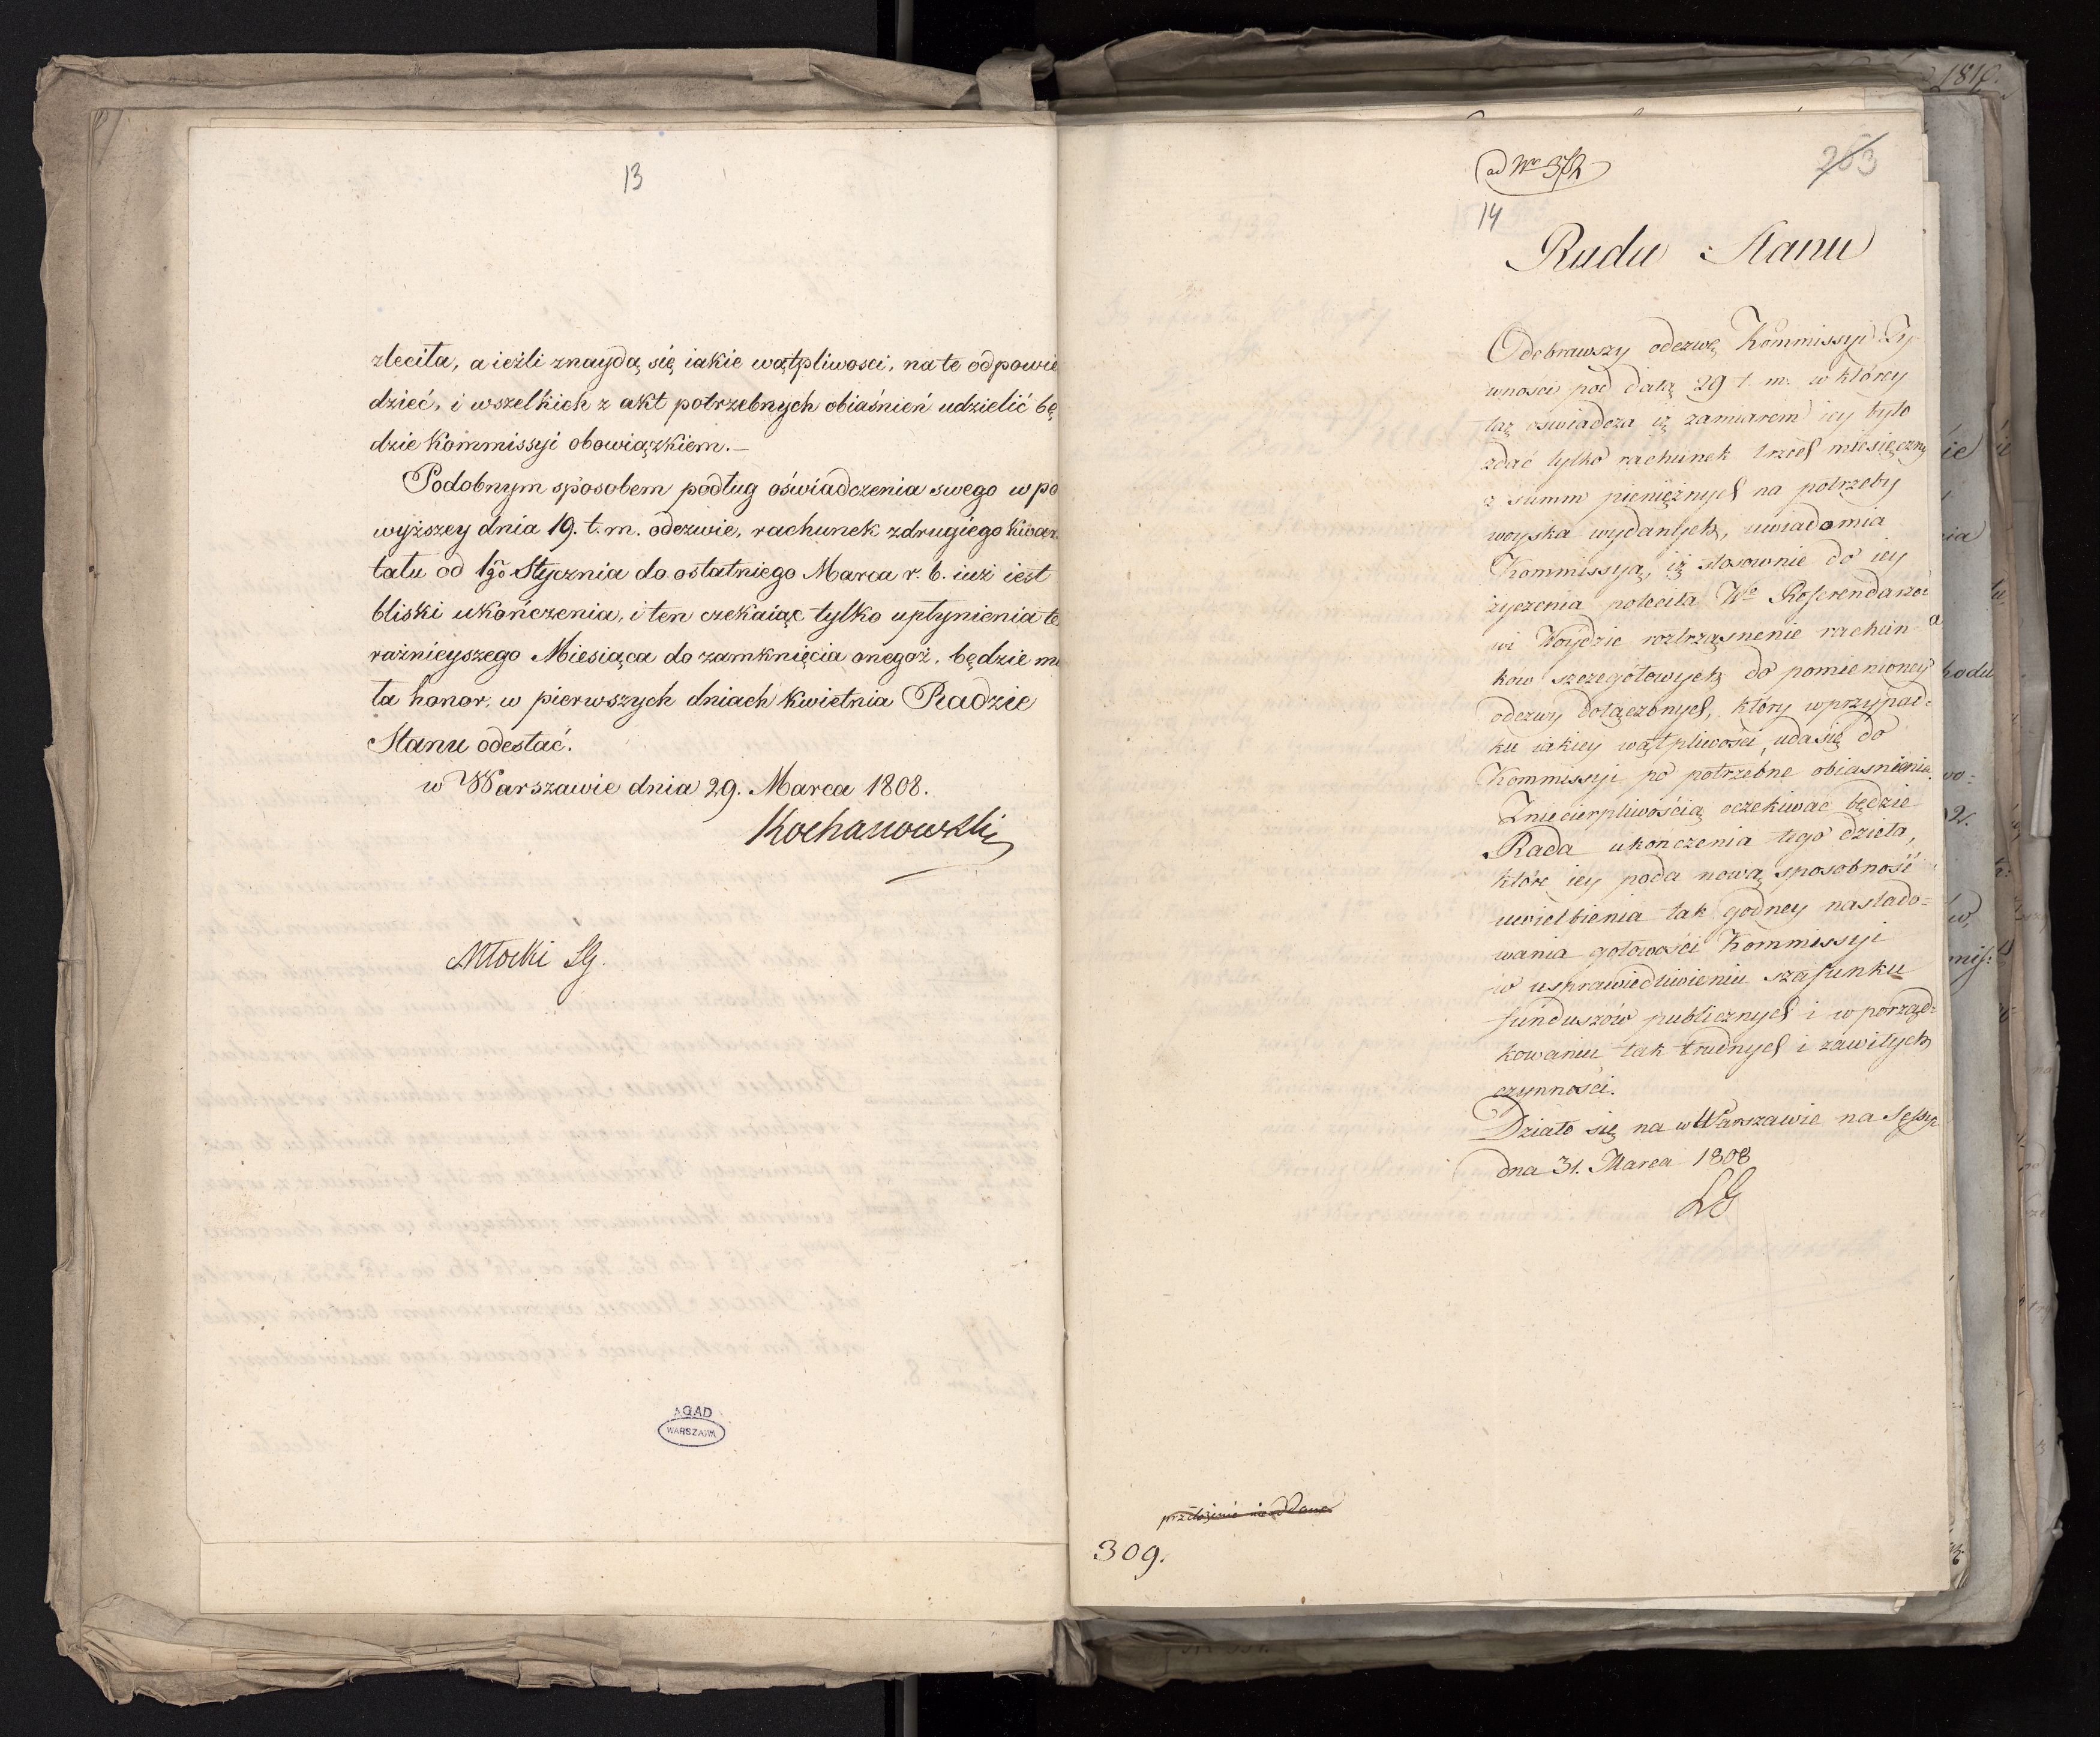 13
zleciła, a ieżli znaydą się iakie wątpliwosci, na te odpowie
dzieć, i wszelkich z akt potrzebnych obiaśnień udzielić bę
dzie Kommissyi obowiązkiem.—
Podobnym sposobem podług oświadczenia swego w po
wyższey dnia 19. t. m. odezwie, rachunek z drugiego Kwar
tału od 1go Stycznia do ostatniego Marca r. b. iuż iest
bliski ukończenia, i ten czekaiąc tylko upłynienia te
raznieyszego Miesiąca do zamknięcia onegoż, będzie mi
ła honor, w pierwszych dniach Kwietnia Radzie
Stanu odesłać.
w Warszawie dnia 29. Marca 1808.
Kochanowski
Młocki SG.
AGAD
WARSZAWA
ad Nr 372
263
14
Rada Stanu
Odebrawszy odezwę Kommissyi Ży-
wności pod datą 29 t. m. w którey
taż oświadcza iż zamiarem iey było
zdać tylko rachunek trzech miesięczny
z summ pieniężnych na potrzeby
woyska wydanych, uwiadomia
Kommissyą, iż stosownie do iey
życzenia poleciła Wu Referendarzo-
wi Woydzie roztrząsnenie rachun-
ków szczegółowych do pomienioney
odezwy dołączonych, który w przypad-
ku iakiey wątpliwości, uda się do
Kommissyi po potrzebne obiasnienia.
Z niecierpliwością oczekiwac będzie
Rada ukończenia tego dzieła,
które iey poda nową sposobność
uwielbienia tak godney naslado=
wania gotowości Kommissyi
w usprawiedliwieniu szafunku
funduszów publicznych i w porząd=
kowaniu tak trudnych i zawiłych
czynności.
Działo się na w Warszawie na Sessyi
dna 31. Marca 1808
SG
przełożenie nie oddane
309.